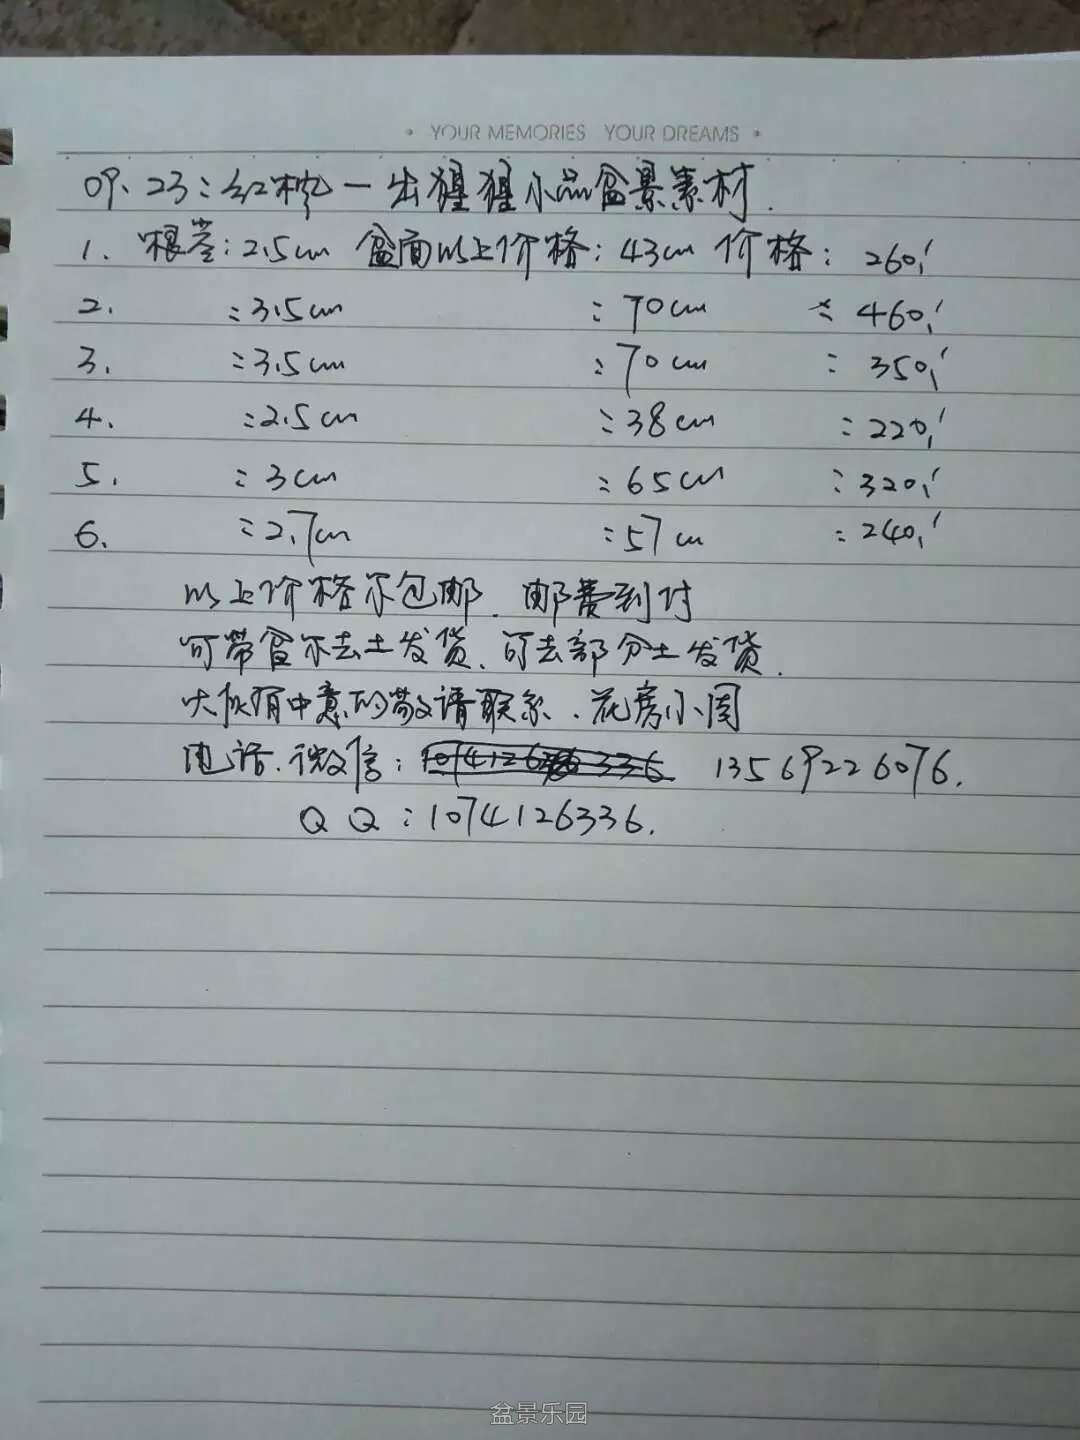 • YOUR MEMORIES YOUR DREAMS •
09.23:红枫一出猩猩小品盆景素材.
1. 根茎:2.5cm 盆面以上价格:43cm 价格: 260,
2. :3.5cm :70cm : 460,
3. :3.5cm :70cm : 350,
4. :2.5cm :38cm :220,
5. :3cm :65cm :320,
6. :2.7cm :57cm :240,
以上价格不包邮.邮费到付
可带盆不去土发货.可去部分土发货.
大伙有中意的敬请联系.花房小周
电话.微信: 1074126336 13569226076.
QQ:1074126336.
盆景乐园